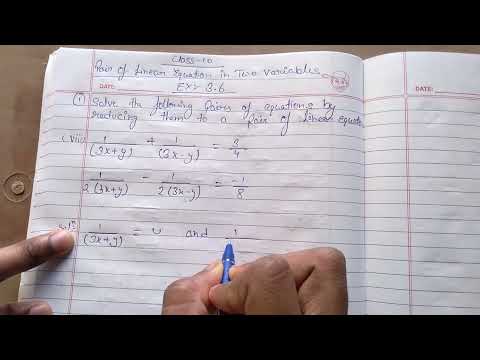 Class-10
Pair of Linear Equation in Two Variables
DATE:
Ex:- 3.6
DATE:
① Solve the following Pairs of equations by
reducing them to a pair of linear equation
(viii) 1/(3x+y) + 1/(3x-y) = 3/4
1/2(3x+y) - 1/2(3x-y) = -1/8
Solⁿ 1/(3x+y) = u and 1